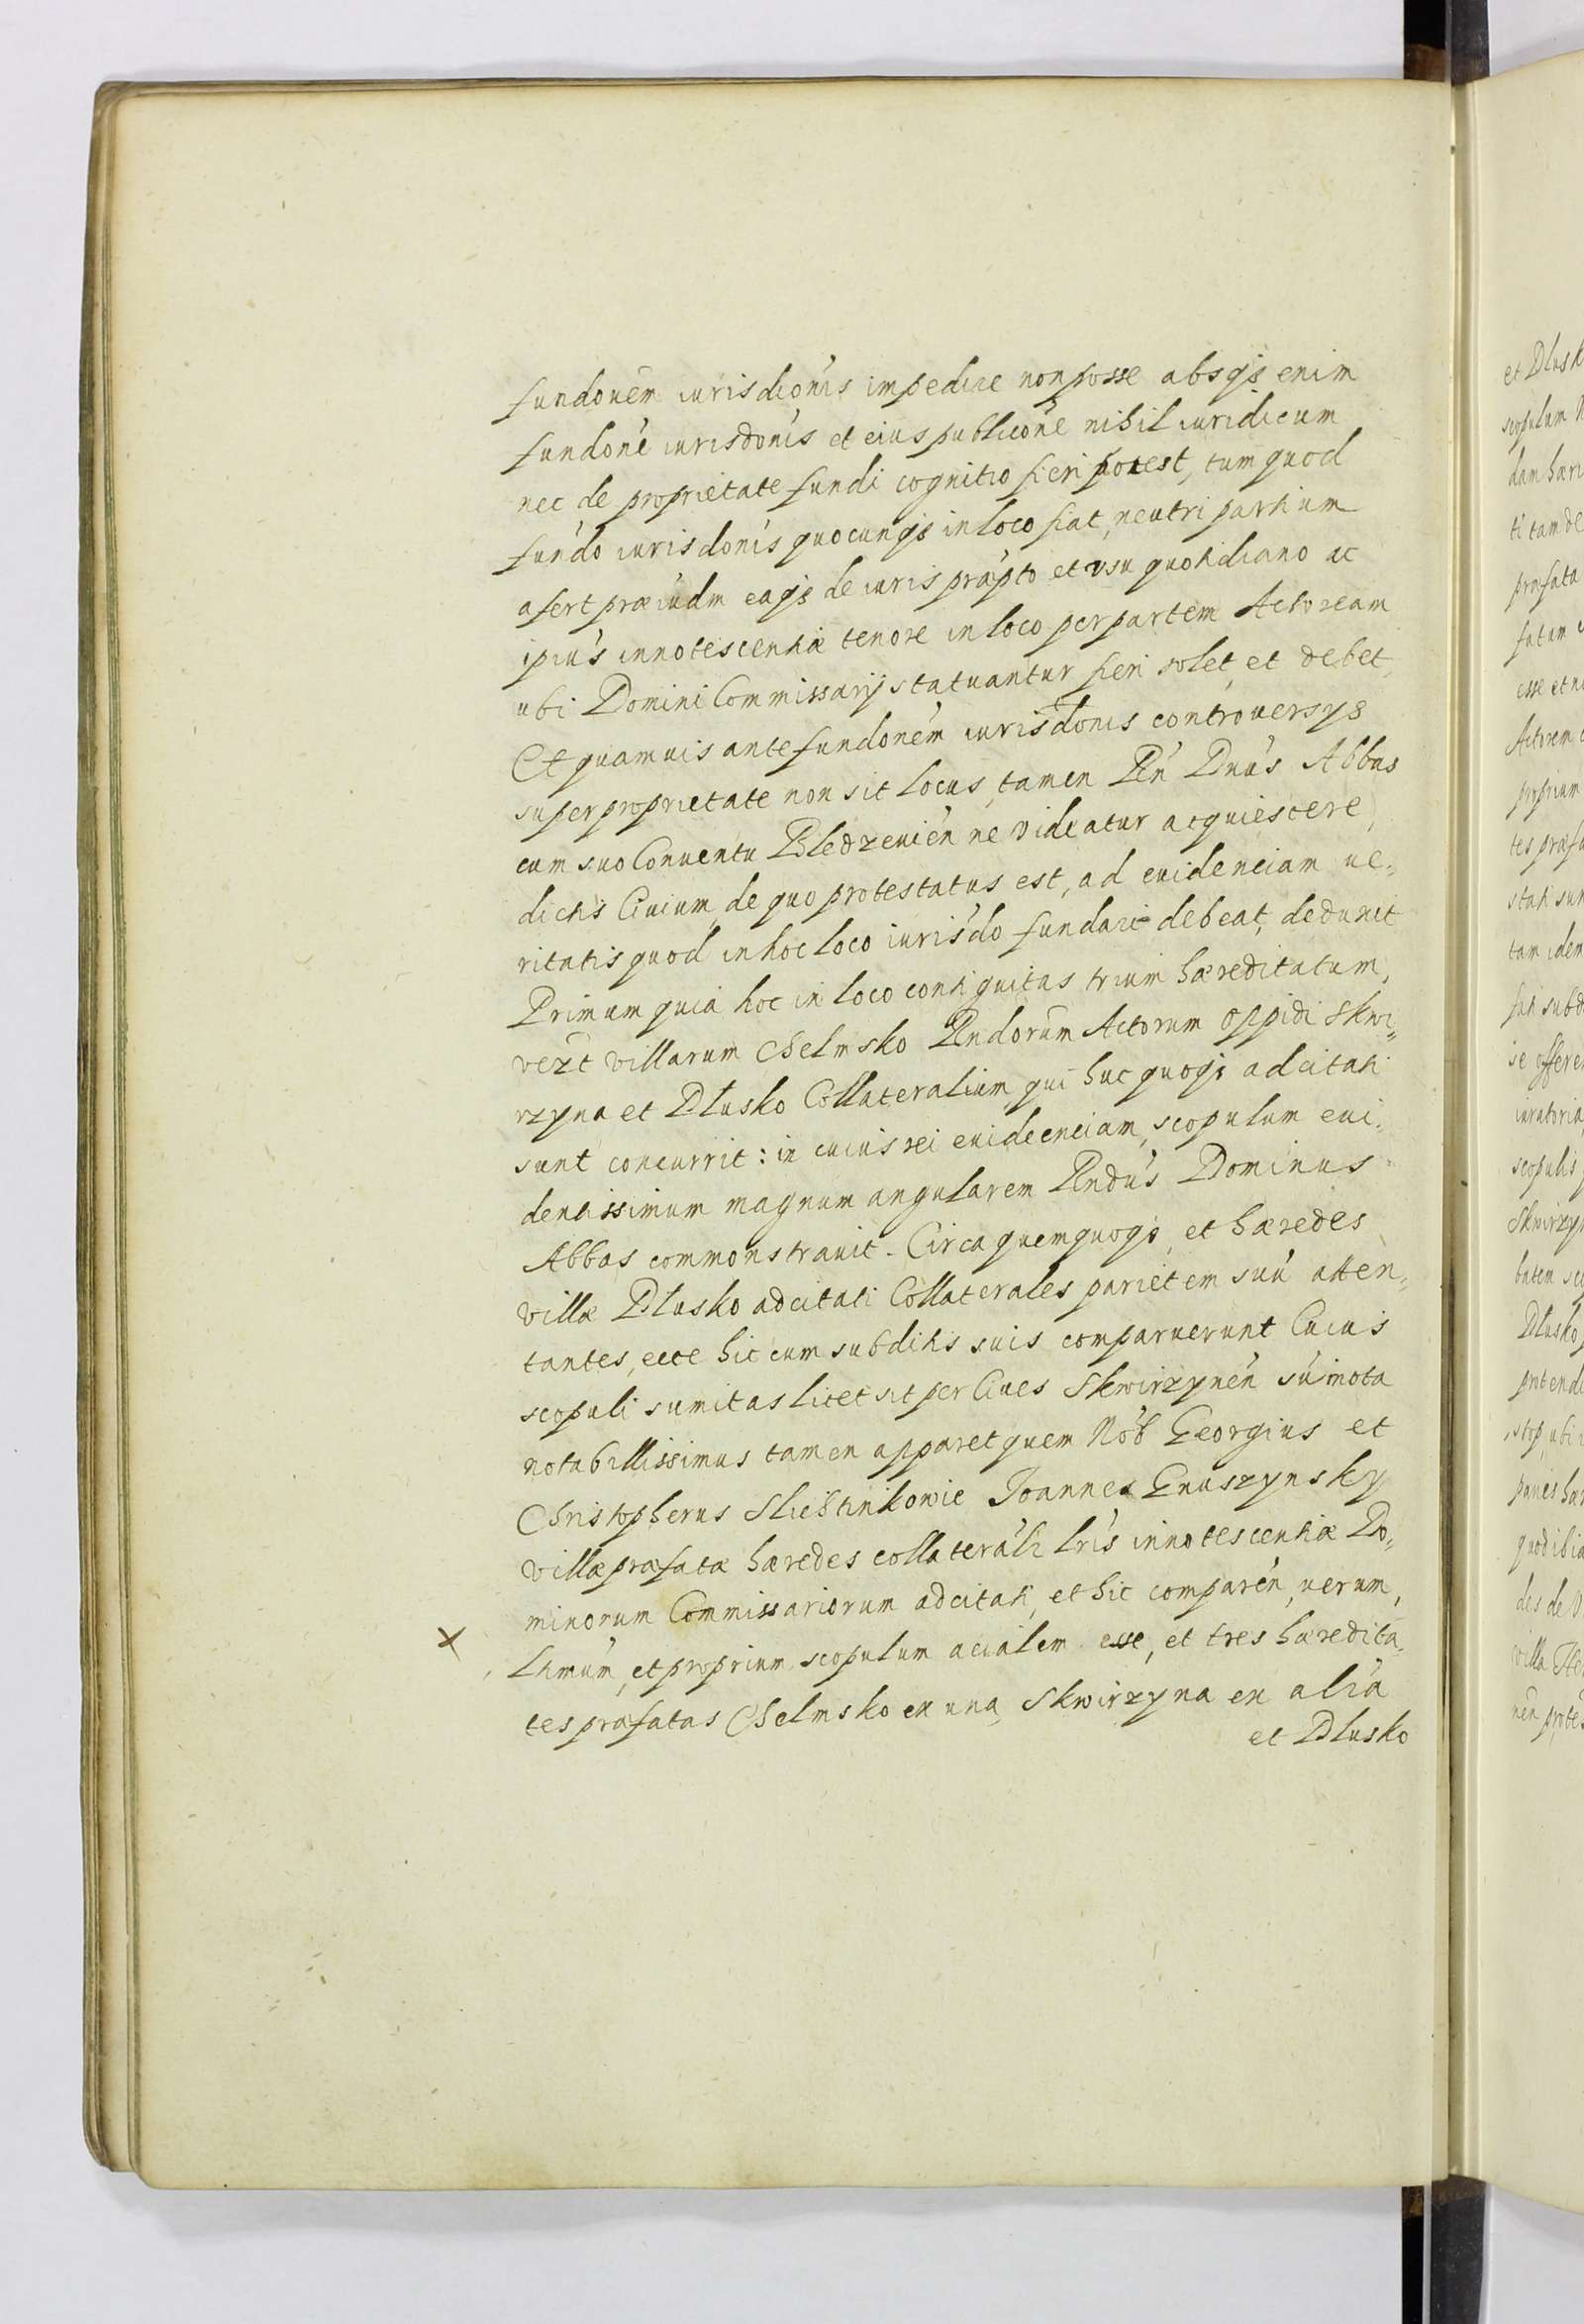 fundonem iurisdictionis impedire non posse absq́ enim
fundoné iurisdonis et eius publicoñe nihil iuridicum
nec de proprietate fundi cognitio fieri potest, tum quod
fundo iurisdonis quocunq́ in loco fiat, neutri partium
afert præiudm eaq́ de iuris præpto et vsu quotidiano ac
ipius innotescentiæ tenore in loco per partem Actoream
ubi Domini Commissarij statuantur fieri solet, et debet
Et quamuis ante fundonem iurisdonis controuersys
super proprietate non sit locus, tamen Rń Dnús Abbas
cum suo Conuentu Bledzeuień ne videatur acquiescere,
dictis Ciuium, de quo protestatus est, ad euidenciam ue-
ritatis quod in hoc loco iurisdo fundari debeat, deduxit
Primum quia hoc in loco contiguitas trium hæreditatum,
vezt villarum Chelmsko Rndorum Actorum oppidi Skwi-
rzyna et Dlusko Collateralium, qui huc quoq́ adcitati
sunt concurrit: in cuius rei euidecnciam, scopulum eui-
dentissimum magnum angularem Rndús Dominus
Abbas commonstrauit. Circa quem quoq́, et hæredes
villæ Dlusko adcitati Collaterales parietem suú atten-
tantes, ecce hic cum subditis suis comparuerunt Cuius
scopuli sumitas licet sit per Ciues Skwirzynén súmota
notabillissimus tamen apparet quem Nob Georgius et
Christopherus Slichtinkowie Joannes Gnuszynsky
villæ præfatæ hæredes collaterali lris innotescentiæ Do-
minorum Commissariorum adcitati, et hic comparén, uerum,
Ltmúm, et proprium scopulum acialem esse, et tres hæredita-
tes præfatas Chelmsko ex una, Skwirzyna ex alia
et Dlusko
et Dlusk
scopulum
dam hæri
ti tam de
præfata
esse et n
Actorem
proprium
tes præfa
stati sun
tam idem
se offere
iuratoria
scopulis
Skwirzy
Dlusko